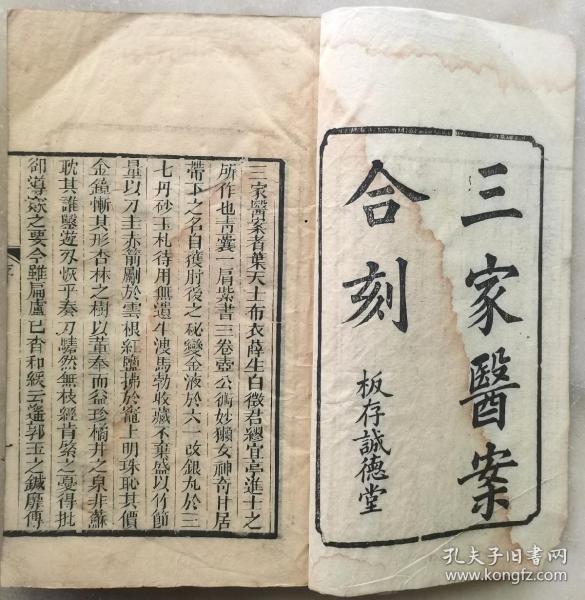 三家醫案
合刻
板存誠德堂
三家醫案者葉天士布衣薛生白徵君繆宜亭進士之
所作也靑囊一肩紫書三卷壺公術妙獺女神奇甘居
帶下之名自獲肘後之秘變金液於六一改銀丸於三
七丹砂玉札待用無遺牛溲馬勃收藏不棄盛以竹節
量以刀圭赤箭劚於雲根紅鹽拂於寵上明珠恥其價
金鐘慚其形杏林之樹以董奉而益珍橘井之泉非蘇
耽其誰鑿遊刃恢乎奏刀騞然無枝經肯綮之戞得批
郤導窾之要今雖扁盧已杳和緩云遙郭玉之鍼靡傳
序
一
孔夫子旧书网
www.kongfz.com